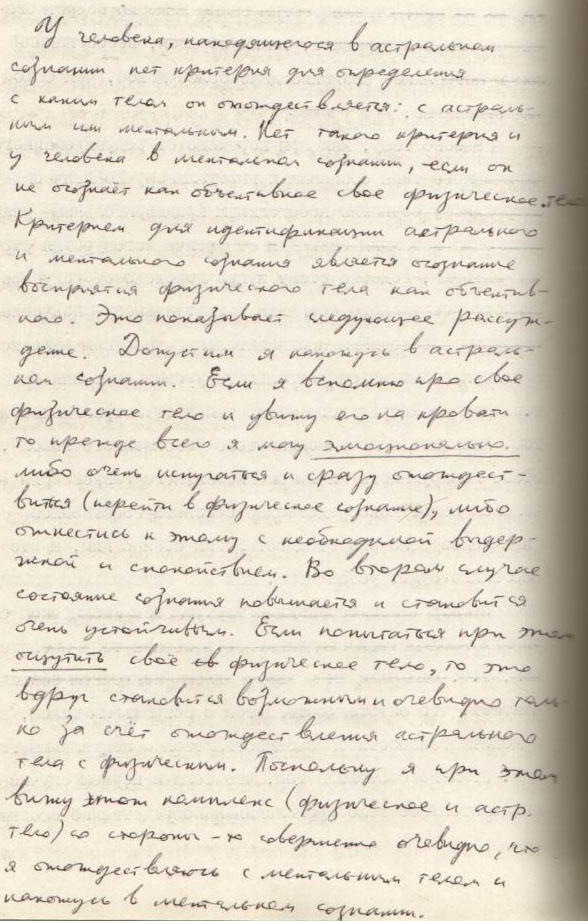 У человека, находящегося в астральном
сознании нет критерия для определения
с каким телом он отождествляется: с астраль-
ным или ментальным. Нет такого критерия и
у человека в ментальном сознании, если он
не осознаёт как объективное свое физическое тело
Критерием для идентификации астрального
и ментального сознания является осознание
восприятия физического тела как объектив-
ного. Это показывает следующее рассуж-
дение. Допустим я нахожусь в астраль-
ном сознании. Если я вспомню про свое
физическое тело и увижу его на кровати
то прежде всего я могу эмоционально.
либо очень испугаться и сразу отождест-
виться (перейти в физическое сознание), либо
отнестись к этому с необходимой выдер-
жкой и спокойствием. Во втором случае
состояние сознания повышается и становится
очень устойчивым. Если попытаться при этом
ощутить своё физическое тело, то это
вдруг становится возможным и очевидно толь-
ко за счёт отождествления астрального
тела с физическим. Поскольку я при этом
вижу этот комплекс (физическое и астр.
тело) со стороны - то совершенно очевидно, что
я отождествляюсь с ментальным телом и
нахожусь в ментальном сознании.